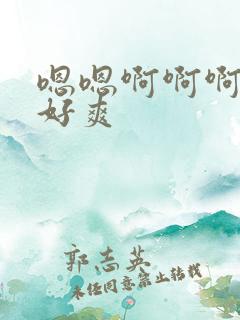 嗯嗯啊啊啊
好爽
郭志英
未经同意禁止转载